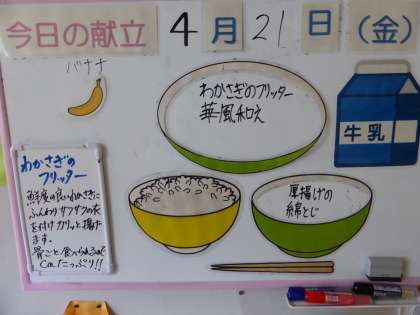 今日の献立 4月21日(金)
バナナ
わかさぎのフリッター
華風和え
牛乳
厚揚げの
綿とじ
わかさぎの
フリッター
鮮度の良いわかさぎに
ふんわりサクサクの衣
を付けカリッと揚げ
ます。
骨ごと食べられるので
Caたっぷり!!